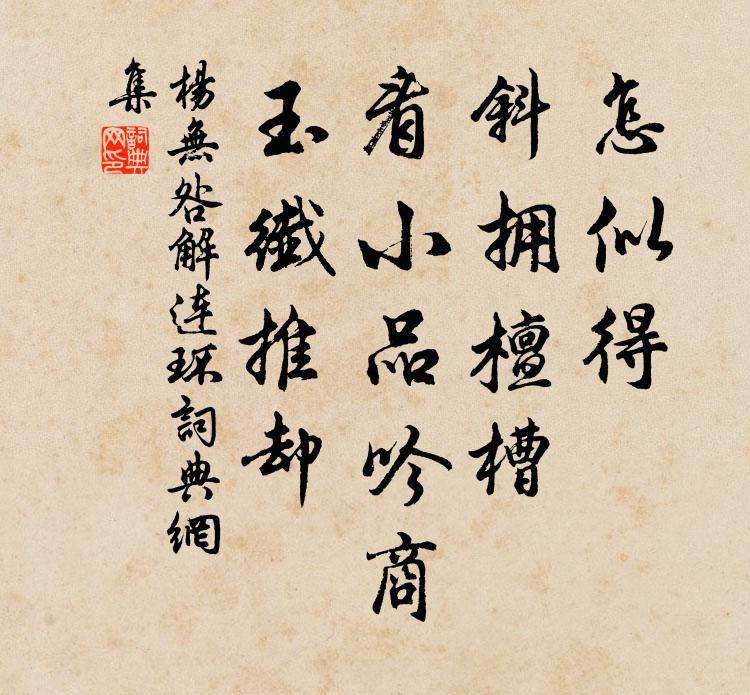 怎似得
斜拥檀槽
看小品吟商
玉纖推却
楊無咎解連環詞典網
集
詞典網印